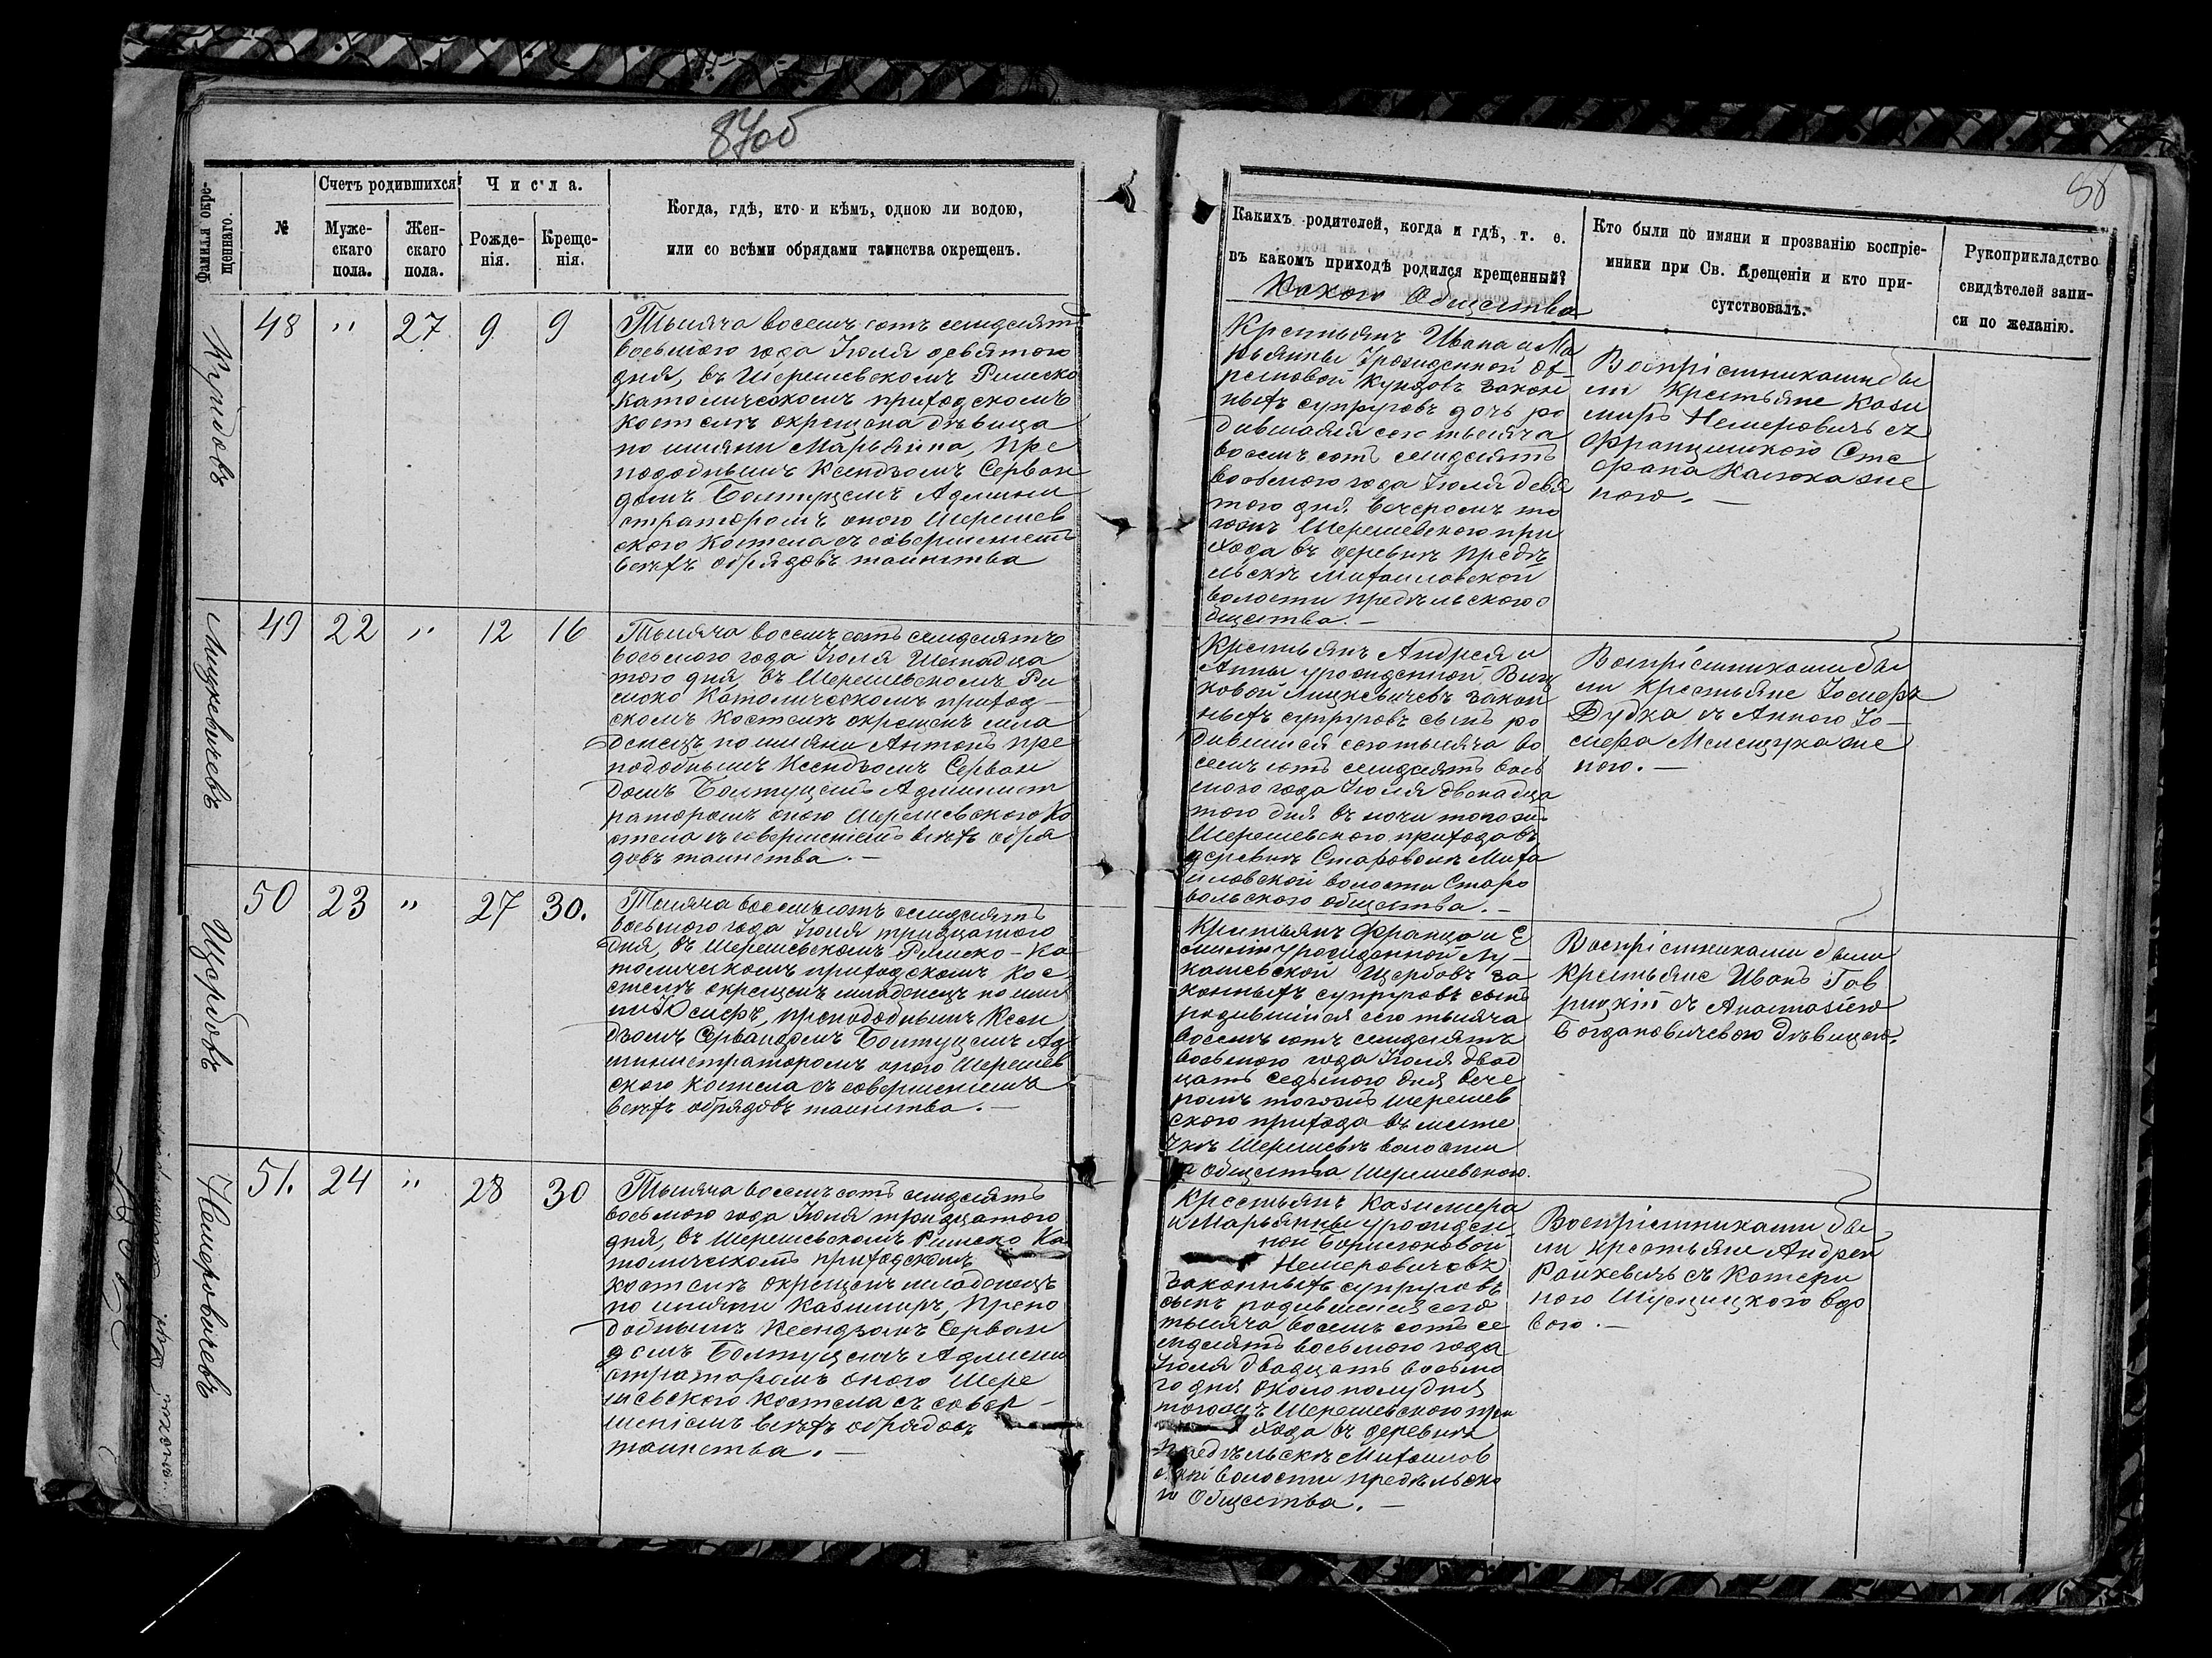 87об
88
Фамилія окре-
щеннаго.
№
Счетъ родившихся
Муже-
скаго
пола.
Жен-
скаго
пола.
Числа.
Рожде-
нія.
Креще-
нія.
Когда, гдѣ, кто и кѣмъ, одною ли водою,
или со всѣми обрядами таинства окрещенъ.
Какихъ родителей, когда и гдѣ, т. е.
въ какомъ приходѣ родился крещенный?
Какого Общества
Кто были по имяни и прозванію воспріе-
мники при Св. Крещеніи и кто при-
сутствовалъ.
Рукоприкладство
свидѣтелей запи-
си по желанію.
Кундовъ
48 " 27 9 9
Тысяча восемь сотъ семдсятъ
восьмого года Іюля девятого
дня, въ Шерешевскомъ Римско
Католическомъ приходскомъ
Костелѣ окрещена дѣвица
по имяни Марьянна, Пре
подобнымъ Ксендзомъ Серван
домъ Болтуцемъ Админи
страторомъ оного Шерешев
ского Костела съ совершеніемъ
всѣхъ обрядовъ таинства
Крестьянъ Ивана и Ма
рьянны Урожденной
Кундовъ закон
ныхъ супруговъ дочь ро
дившаяся сего тысяча
восемь сотъ семдсятъ
восьмого года Іюля девя
того дня вечеромъ то
гожъ Шерешевского при
хода въ деревнѣ Предѣ
льскѣ Михайловской
волости Предѣльского о
бщества. —
Воспріемниками бы
ли Крестьяне Кази
миръ Немеровичъ съ
Францишкою Сте
фана Калюка же
ною. —
Мицкевичевъ
49 22 " 12 16
Тысяча восемь сотъ семдсятъ
восьмого года Іюля Шестнадца
того дня, въ Шерешевскомъ Ри
мско Католическомъ приход-
скомъ Костелѣ окрещенъ мла
денецъ по имяни Антонъ пре
подобнымъ Ксендзомъ Серван
домъ Болтуцемъ Админист
раторомъ оного Шерешевского Ко
стела съ совершеніемъ всѣхъ обря
довъ таинства. —
Крестьянъ Андрея и
Анны урожденной
ковой Мицкевичевъ закон
ныхъ супруговъ сынъ ро
дившійся сего тысяча во
семь сотъ семдсятъ вось
мого года Іюля двенадца
того дня въ ночи тогожъ
Шерешевского прихода въ
деревнѣ Старовомъ Миха
йловской волости Старо
вольского общества. —
Воспріемниками бы
ли Крестьяне Іосифъ
Дудка съ Анною Іо-
сифа Мелещука же
ною. —
Щербовъ
50 23 " 27 30.
Тысяча восемь сотъ семдсятъ
восьмого года Іюля тридцатого
дня, въ Шерешевскомъ Римско-Ка
толическомъ приходскомъ Кос
стелѣ окрещенъ младенецъ по имя
ни Іосифъ, преподобнымъ Ксен
дзомъ Сервандомъ Болтуцемъ Ад
министраторомъ оного Шерешев
ского Костела съ совершеніемъ
всѣхъ обрядовъ таинства. —
Крестьянъ Францa и Е
миліи Урожденной Лу-
кашевской Щербовъ за
конныхъ супруговъ сынъ
родившійся сего тысяча
восемь сотъ семдсятъ
восьмого года Іюля двад
цать седьмого дня вече
ромъ тогожъ Шерешев
ского прихода въ месте
чкѣ Шерешевѣ волости
и общества Шерешевского.
Воспріемниками были
крестьяне Иванъ Гав
рицкій съ Анастасіею
Богдановичевою дѣвицею.
Немеровичевъ
51. 24 " 28 30
Тысяча восемь сотъ семдсятъ
восьмого года Іюля тридцатого
дня, въ Шерешевскомъ Римско Ка
толическомъ приходскомъ
костелѣ окрещенъ младенецъ
по имяни Казимиръ, Препо
добнымъ Ксендзомъ Серван
домъ Болтуцемъ Админи
страторомъ оного Шере
шевского костела съ совер-
шеніемъ всѣхъ обрядовъ
таинства. —
Крестьянъ Казимера
и Марьянны урожден
ной Борисюковой
Немеровичовъ
законныхъ супруговъ
сынъ родившійся сего
тысяча восемь сотъ се
мдсятъ восьмого года
Іюля двадцать восьмо
го дня около полудня
тогожъ Шерешевского при
хода въ деревнѣ
Предѣльскѣ Михайлов
ской волости предѣльско
го Общества. —
Воспріемниками бы-
ли крестьяне Андрей
Райкевичъ съ Катери
ною вдо
вою. —